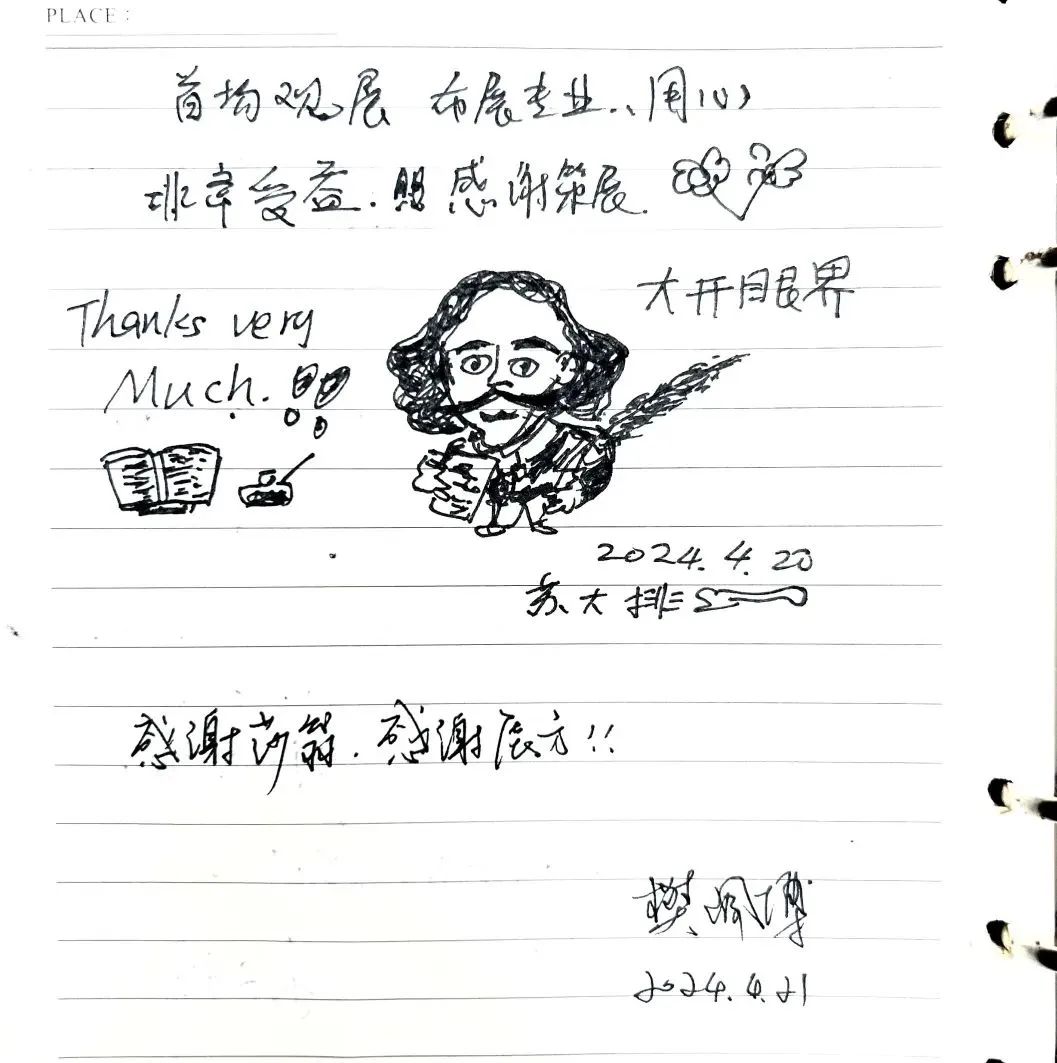 PLACE：
首场观展 布展专业、用心
非常受益. 感谢策展.
大开眼界
Thanks very
Much.!!
2024.4.20
苏大排
感谢莎翁.感谢展方!!
樊佩博
2024.4.21